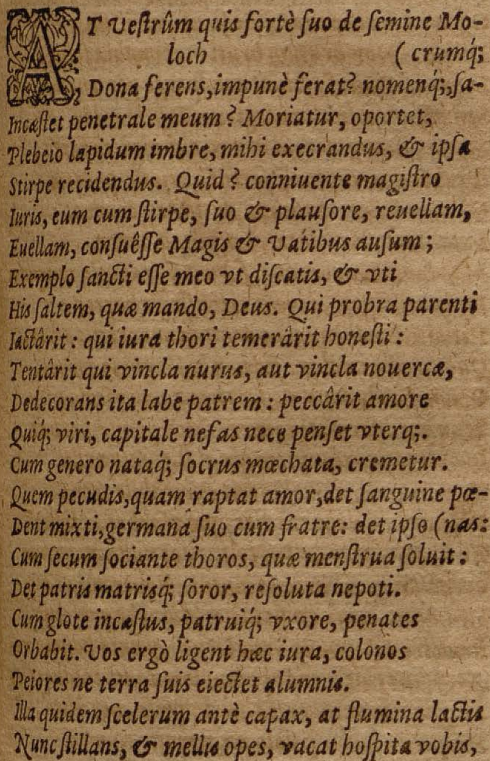 AT Vestrûm quis fortè suo de semine Mo-
loch (crumq́;
Dona ferens, impunè ferat? nomenq́;, sa-
Incæstet penetrale meum? Moriatur, oportet,
Plebeio lapidum imbre, mihi execrandus, & ipsa
Stirpe recidendus. Quid? conniuente magistro
Iuris, eum cum stirpe, suo & plausore, reuellam,
Euellam, consuêsse Magis & Vatibus ausum;
Exemplo sancti esse meo vt discatis, & vti
His saltem, quæ mando, Deus. Qui probra parenti
Iactârit: qui iura thori temerârit honesti:
Tentârit qui vincla nurus, aut vincla nouercæ,
Dedecorans ita labe patrem: peccârit amore
Quiq́; viri, capitale nefas nece penset vterq;.
Cum genero nataq́; socrus mœchata, cremetur.
Quem pecudis, quam raptat amor, det sanguine pœ-
Dent mixti, germana suo cum fratre: det ipso (nas:
Cum secum sociante thoros, quæ menstrua soluit:
Det patris matrisq́; soror, resoluta nepoti.
Cum glote incæstus, patruiq́; vxore, penates
Orbabit. Vos ergò ligent hæc iura, colonos
Peiores ne terra suis eiectet alumnis.
Illa quidem scelerum antè capax, at flumina lactis
Nunc stillans, & mellis opes, vacat hospita vobis,